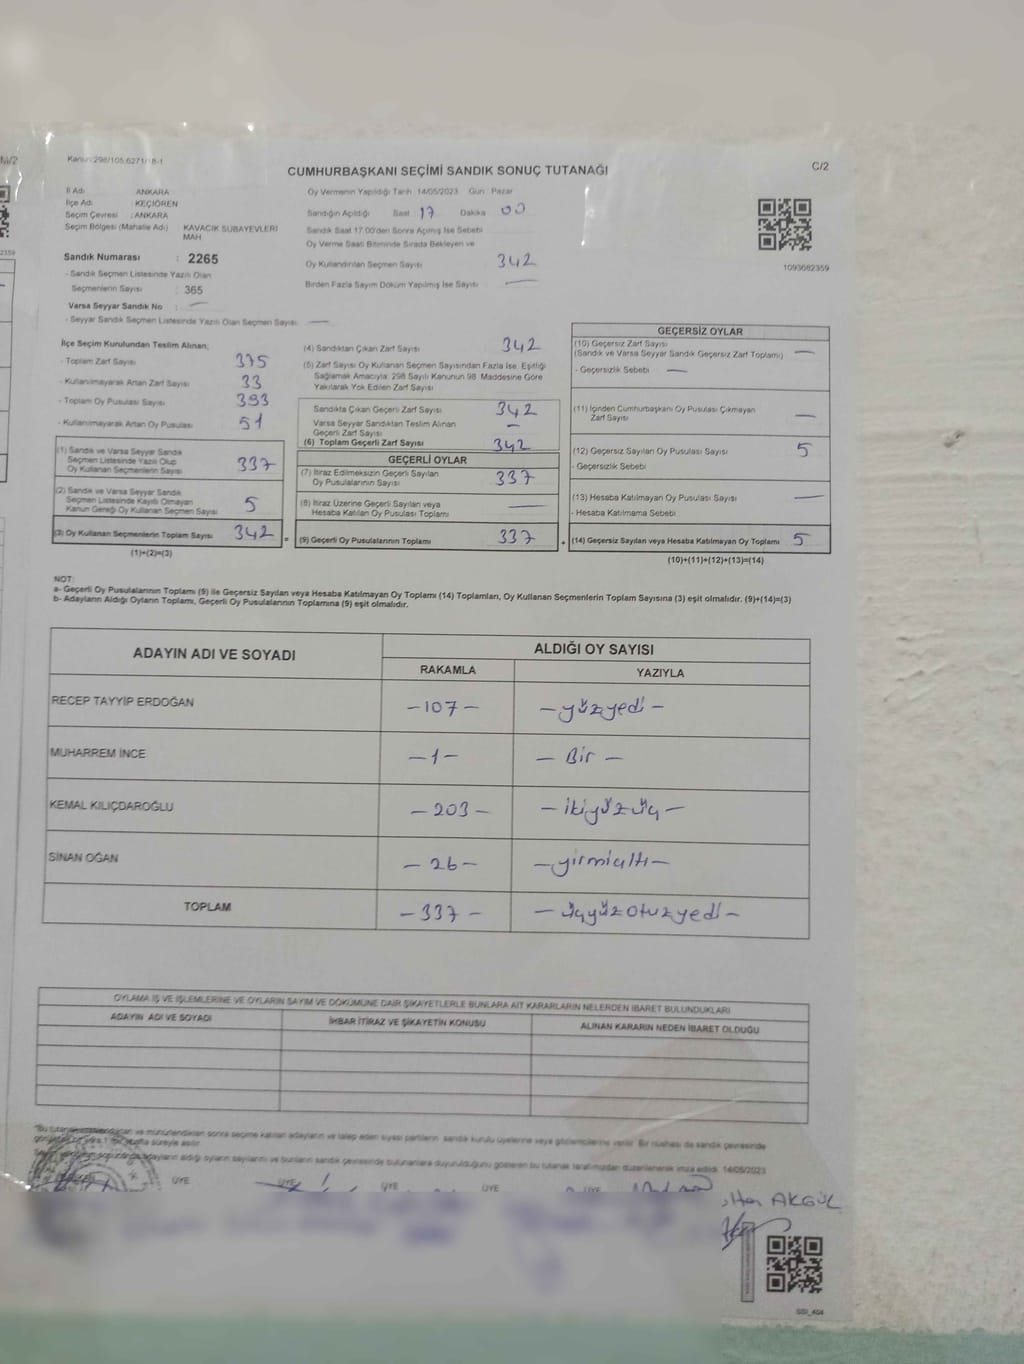 Kanun: 298/105,6271/18-1
C/2
CUMHURBAŞKANI SEÇİMİ SANDIK SONUÇ TUTANAĞI
İl Adı : ANKARA
İlçe Adı : KEÇİÖREN
Seçim Çevresi : ANKARA
Seçim Bölgesi (Mahalle Adı) : KAVACIK SUBAYEVLERİ MAH.
Sandık Numarası : 2265
- Sandık Seçmen Listesinde Yazılı Olan
Seçmenlerin Sayısı : 365
Varsa Seyyar Sandık No : —
- Seyyar Sandık Seçmen Listesinde Yazılı Olan Seçmen Sayısı : —
Oy Vermenin Yapıldığı Tarih :14/05/2023 Gün : Pazar
Sandığın Açıldığı Saat 17 Dakika 00
Sandık Saat 17.00'den Sonra Açılmış İse Sebebi
Oy Verme Saati Bitiminde Sırada Bekleyen ve
Oy Kullandırılan Seçmen Sayısı 342
Birden Fazla Sayım Döküm Yapılmış İse Sayısı —
1093682359
İlçe Seçim Kurulundan Teslim Alınan;
- Toplam Zarf Sayısı 375
- Kullanılmayarak Artan Zarf Sayısı 33
- Toplam Oy Pusulası Sayısı 393
- Kullanılmayarak Artan Oy Pusulası 51
(1) Sandık ve Varsa Seyyar Sandık
Seçmen Listesinde Yazılı Olup
Oy Kullanan Seçmenlerin Sayısı 337
(2) Sandık ve Varsa Seyyar Sandık
Seçmen Listesinde Kayıtlı Olmayan
Kanun Gereği Oy Kullanan Seçmen Sayısı 5
(3) Oy Kullanan Seçmenlerin Toplam Sayısı 342
(1)+(2)=(3)
(4) Sandıktan Çıkan Zarf Sayısı 342
(5) Zarf Sayısı Oy Kullanan Seçmen Sayısından Fazla İse, Eşitliği
Sağlamak Amacıyla; 298 Sayılı Kanunun 98. Maddesine Göre
Yakılarak Yok Edilen Zarf Sayısı
Sandıkta Çıkan Geçerli Zarf Sayısı 342
Varsa Seyyar Sandıktan Teslim Alınan
Geçerli Zarf Sayısı —
(6) Toplam Geçerli Zarf Sayısı 342
GEÇERLİ OYLAR
(7) İtiraz Edilmeksizin Geçerli Sayılan
Oy Pusulalarının Sayısı 337
(8) İtiraz Üzerine Geçerli Sayılan veya
Hesaba Katılan Oy Pusulası Toplamı —
= (9) Geçerli Oy Pusulalarının Toplamı 337
GEÇERSİZ OYLAR
(10) Geçersiz Zarf Sayısı
(Sandık ve Varsa Seyyar Sandık Geçersiz Zarf Toplamı) —
- Geçersizlik Sebebi : —
(11) İçinden Cumhurbaşkanı Oy Pusulası Çıkmayan
Zarf Sayısı —
(12) Geçersiz Sayılan Oy Pusulası Sayısı 5
- Geçersizlik Sebebi
(13) Hesaba Katılmayan Oy Pusulası Sayısı —
- Hesaba Katılmama Sebebi
+ (14) Geçersiz Sayılan veya Hesaba Katılmayan Oy Toplamı 5
(10)+(11)+(12)+(13)=(14)
NOT:
a- Geçerli Oy Pusulalarının Toplamı (9) ile Geçersiz Sayılan veya Hesaba Katılmayan Oy Toplamı (14) Toplamları, Oy Kullanan Seçmenlerin Toplam Sayısına (3) eşit olmalıdır. (9)+(14)=(3)
b- Adayların Aldığı Oyların Toplamı, Geçerli Oy Pusulalarının Toplamına (9) eşit olmalıdır.
ADAYIN ADI VE SOYADI
ALDIĞI OY SAYISI
RAKAMLA YAZIYLA
RECEP TAYYİP ERDOĞAN -107- -yüzyedi-
MUHARREM İNCE -1- - Bir -
KEMAL KILIÇDAROĞLU -203- -ikiyüzüç-
SİNAN OĞAN -26- -yirmialtı-
TOPLAM -337- -üçyüzotuzyedi-
OYLAMA İŞ VE İŞLEMLERİNE VE OYLARIN SAYIM VE DÖKÜMÜNE DAİR ŞİKAYETLERLE BUNLARA AİT KARARLARIN NELERDEN İBARET BULUNDUKLARI
ADAYIN ADI VE SOYADI İHBAR İTİRAZ VE ŞİKAYETİN KONUSU ALINAN KARARIN NEDEN İBARET OLDUĞU
sonra seçime katılan adayların ve talep eden siyasi partilerin sandık kurulu üyelerine veya gözlemcilerine verilir. Bir nüshası da sandık çevresinde
süreyle asılır.
adayların aldığı oyların sayılarını ve bunların sandık çevresinde bulunanlara duyurulduğunu gösteren bu tutanak tarafımızdan düzenlenerek imza edildi. 14/05/2023
ÜYE ÜYE ÜYE ÜYE ÜYE
AKGÜL